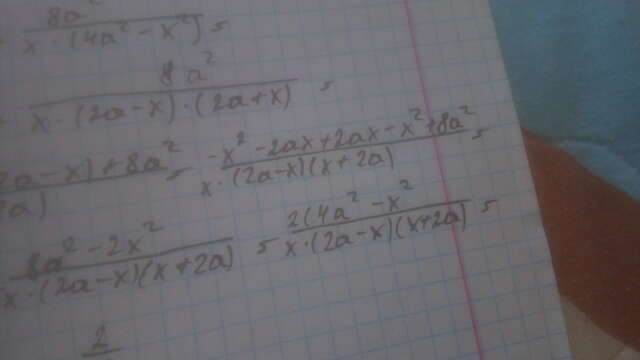 8a² / x · (4a² - x²) =
8a² / x · (2a-x) · (2a+x) =
2a-x) + 8a² / 2a) = -x² - 2ax + 2ax - x² + 8a² / x · (2a-x)(x+2a) =
8a² - 2x² / x · (2a-x)(x+2a) = 2(4a² - x² / x · (2a-x)(x+2a) =
2